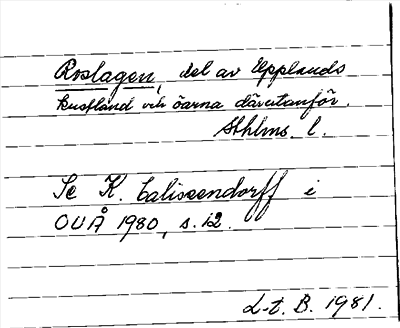 Roslagen, del av Upplands
kustland och öarna därutanför.
Sthlms l.
Se K. Calissendorff i
OUÅ 1980, s. 12.
L-t. B. 1981.